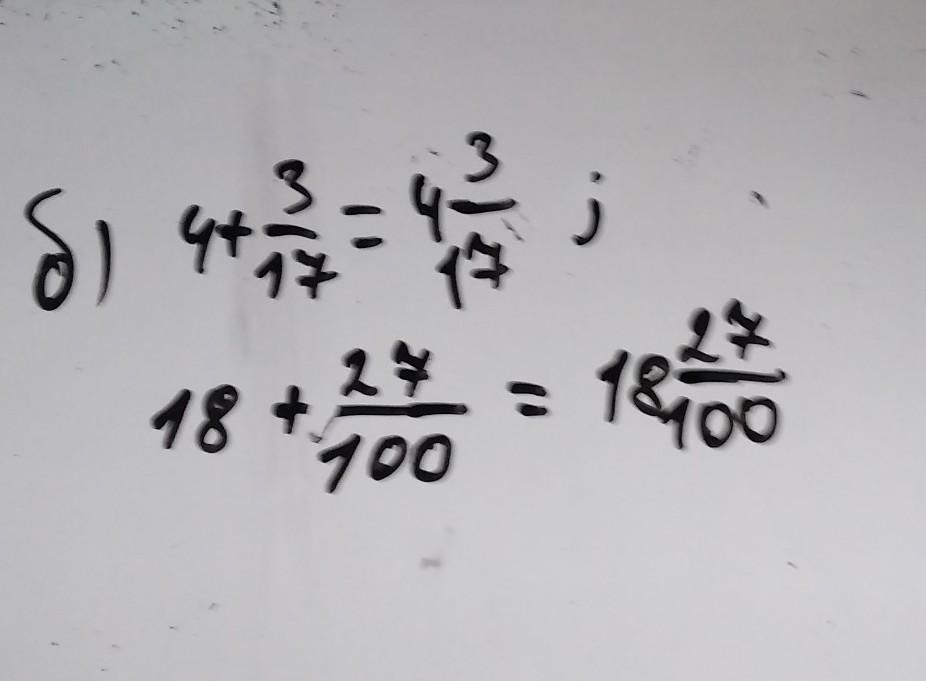 б) 4 + 3/17 = 4 3/17 ;
18 + 27/100 = 18 27/100